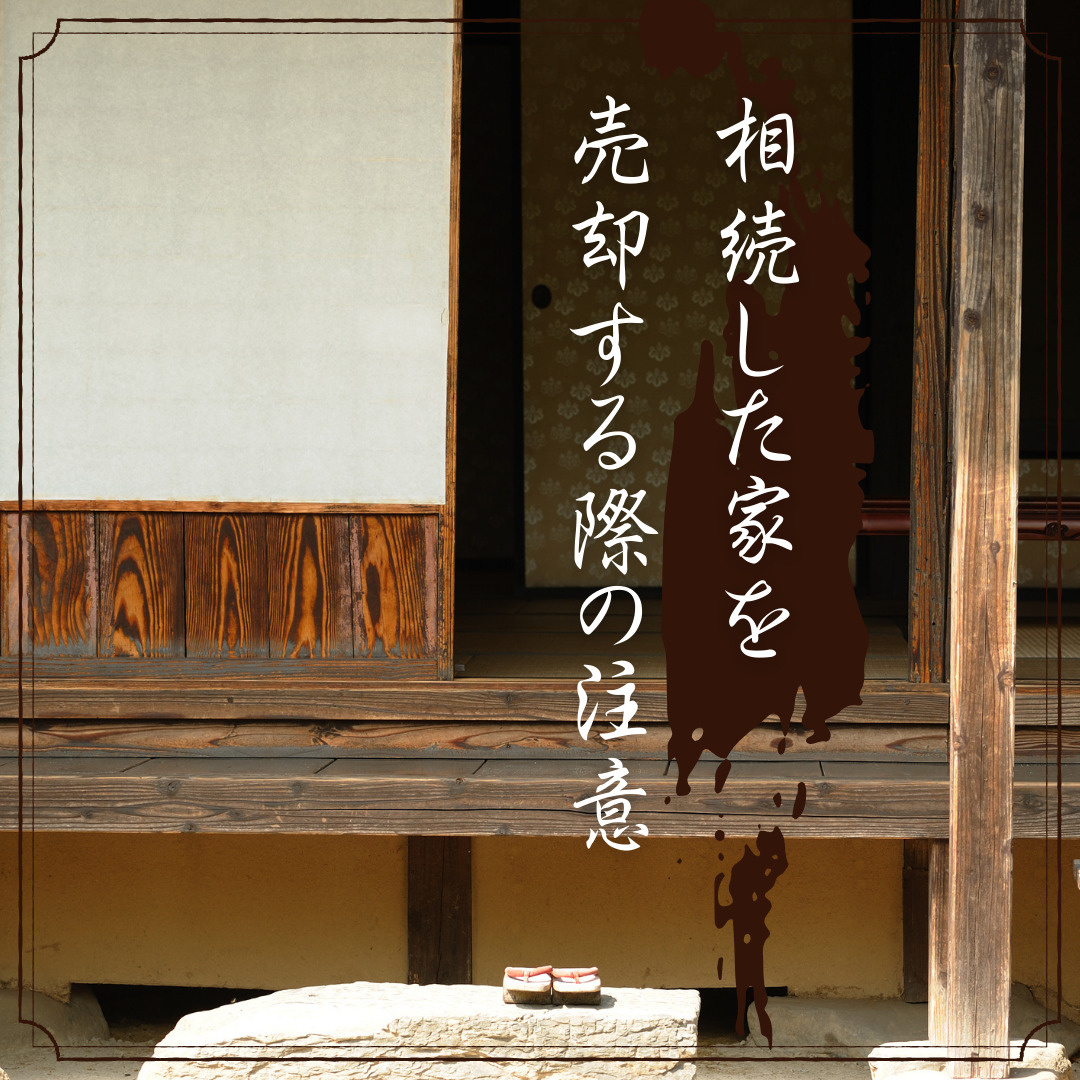 相続した家を
売却する際の注意